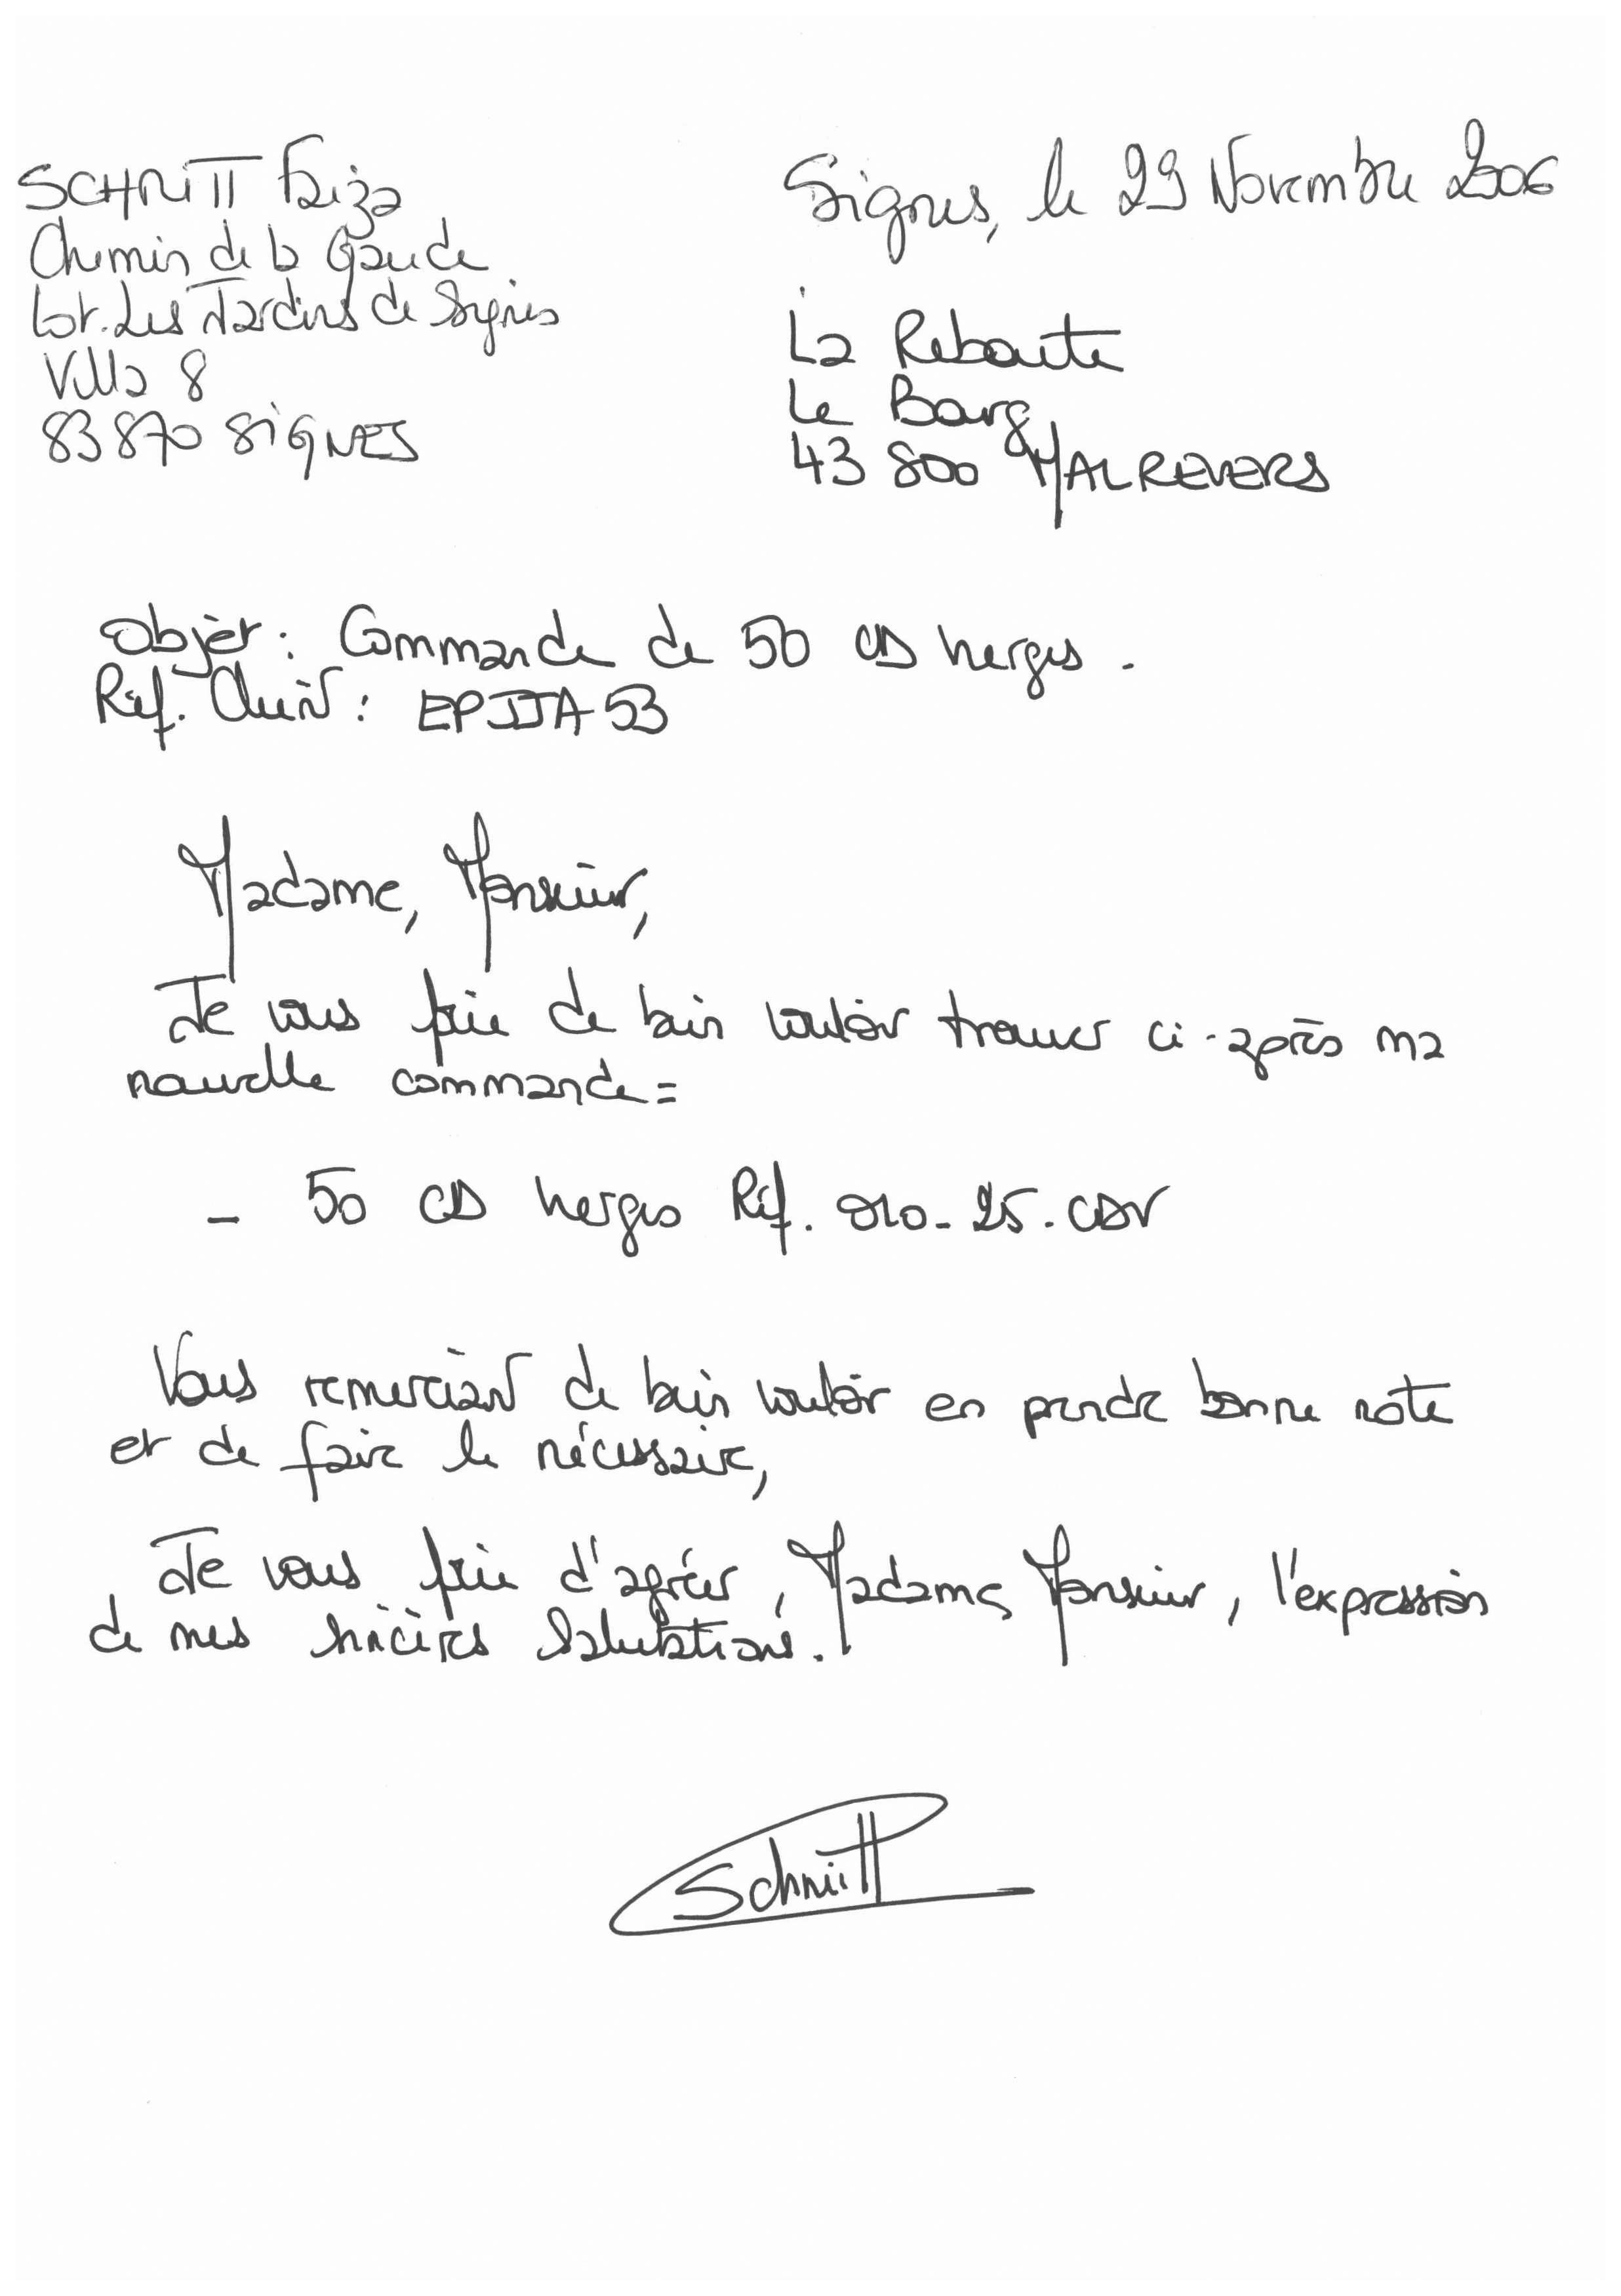 SCHMITT Faiza
Chemin de la Gaude
Lot. Les Jardins de Signes
Villa 8
83870 SIGNES
Signes, le 29 Novembre 2006
La Reboute
Le Bourg
43 800 MALREVERS
Objet : Commande de 50 CD vierges.
Réf. Client : EPJJA53
Madame, Monsieur,
Je vous prie de bien vouloir trouver ci-après ma
nouvelle commande =
- 50 CD vierges Réf. 010-25-CDV
Vous remerciant de bien vouloir en prendre bonne note
et de faire le nécessaire,
Je vous prie d'agréer, Madame, Monsieur, l'expression
de mes sincères salutations.
Schmitt